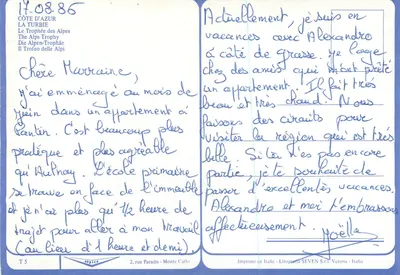 17.08.86
CÔTE D'AZUR
LA TURBIE
Le Trophée des Alpes
The Alps Trophy
Die Alpen-Trophäe
Il Trofeo delle Alpi
Chère Marraine,
j'ai emménagé au mois de
juin dans un appartement à
Pantin. C'est beaucoup plus
pratique et plus agréable
qu'Aulnay. L'école primaire
se trouve en face de l'immeuble
et je n'ai plus qu'1/2 heure de
trajet pour aller à mon travail
(au lieu d'1 heure et demi).
T 5
2, rue Paradis - Monte Carlo
Actuellement, je suis en
vacances avec Alexandro
à côté de Grasse. Je loge
chez des amis qui m'ont prêté
un appartement. Il fait très
beau et très chaud. Nous
faisons des circuits pour
visiter la région qui est très
belle. Si tu n'es pas encore
partie, je te souhaite de
passer d'excellentes vacances.
Alexandro et moi t'embrassons
affectueusement.
Joëlle
Imprimé en Italie